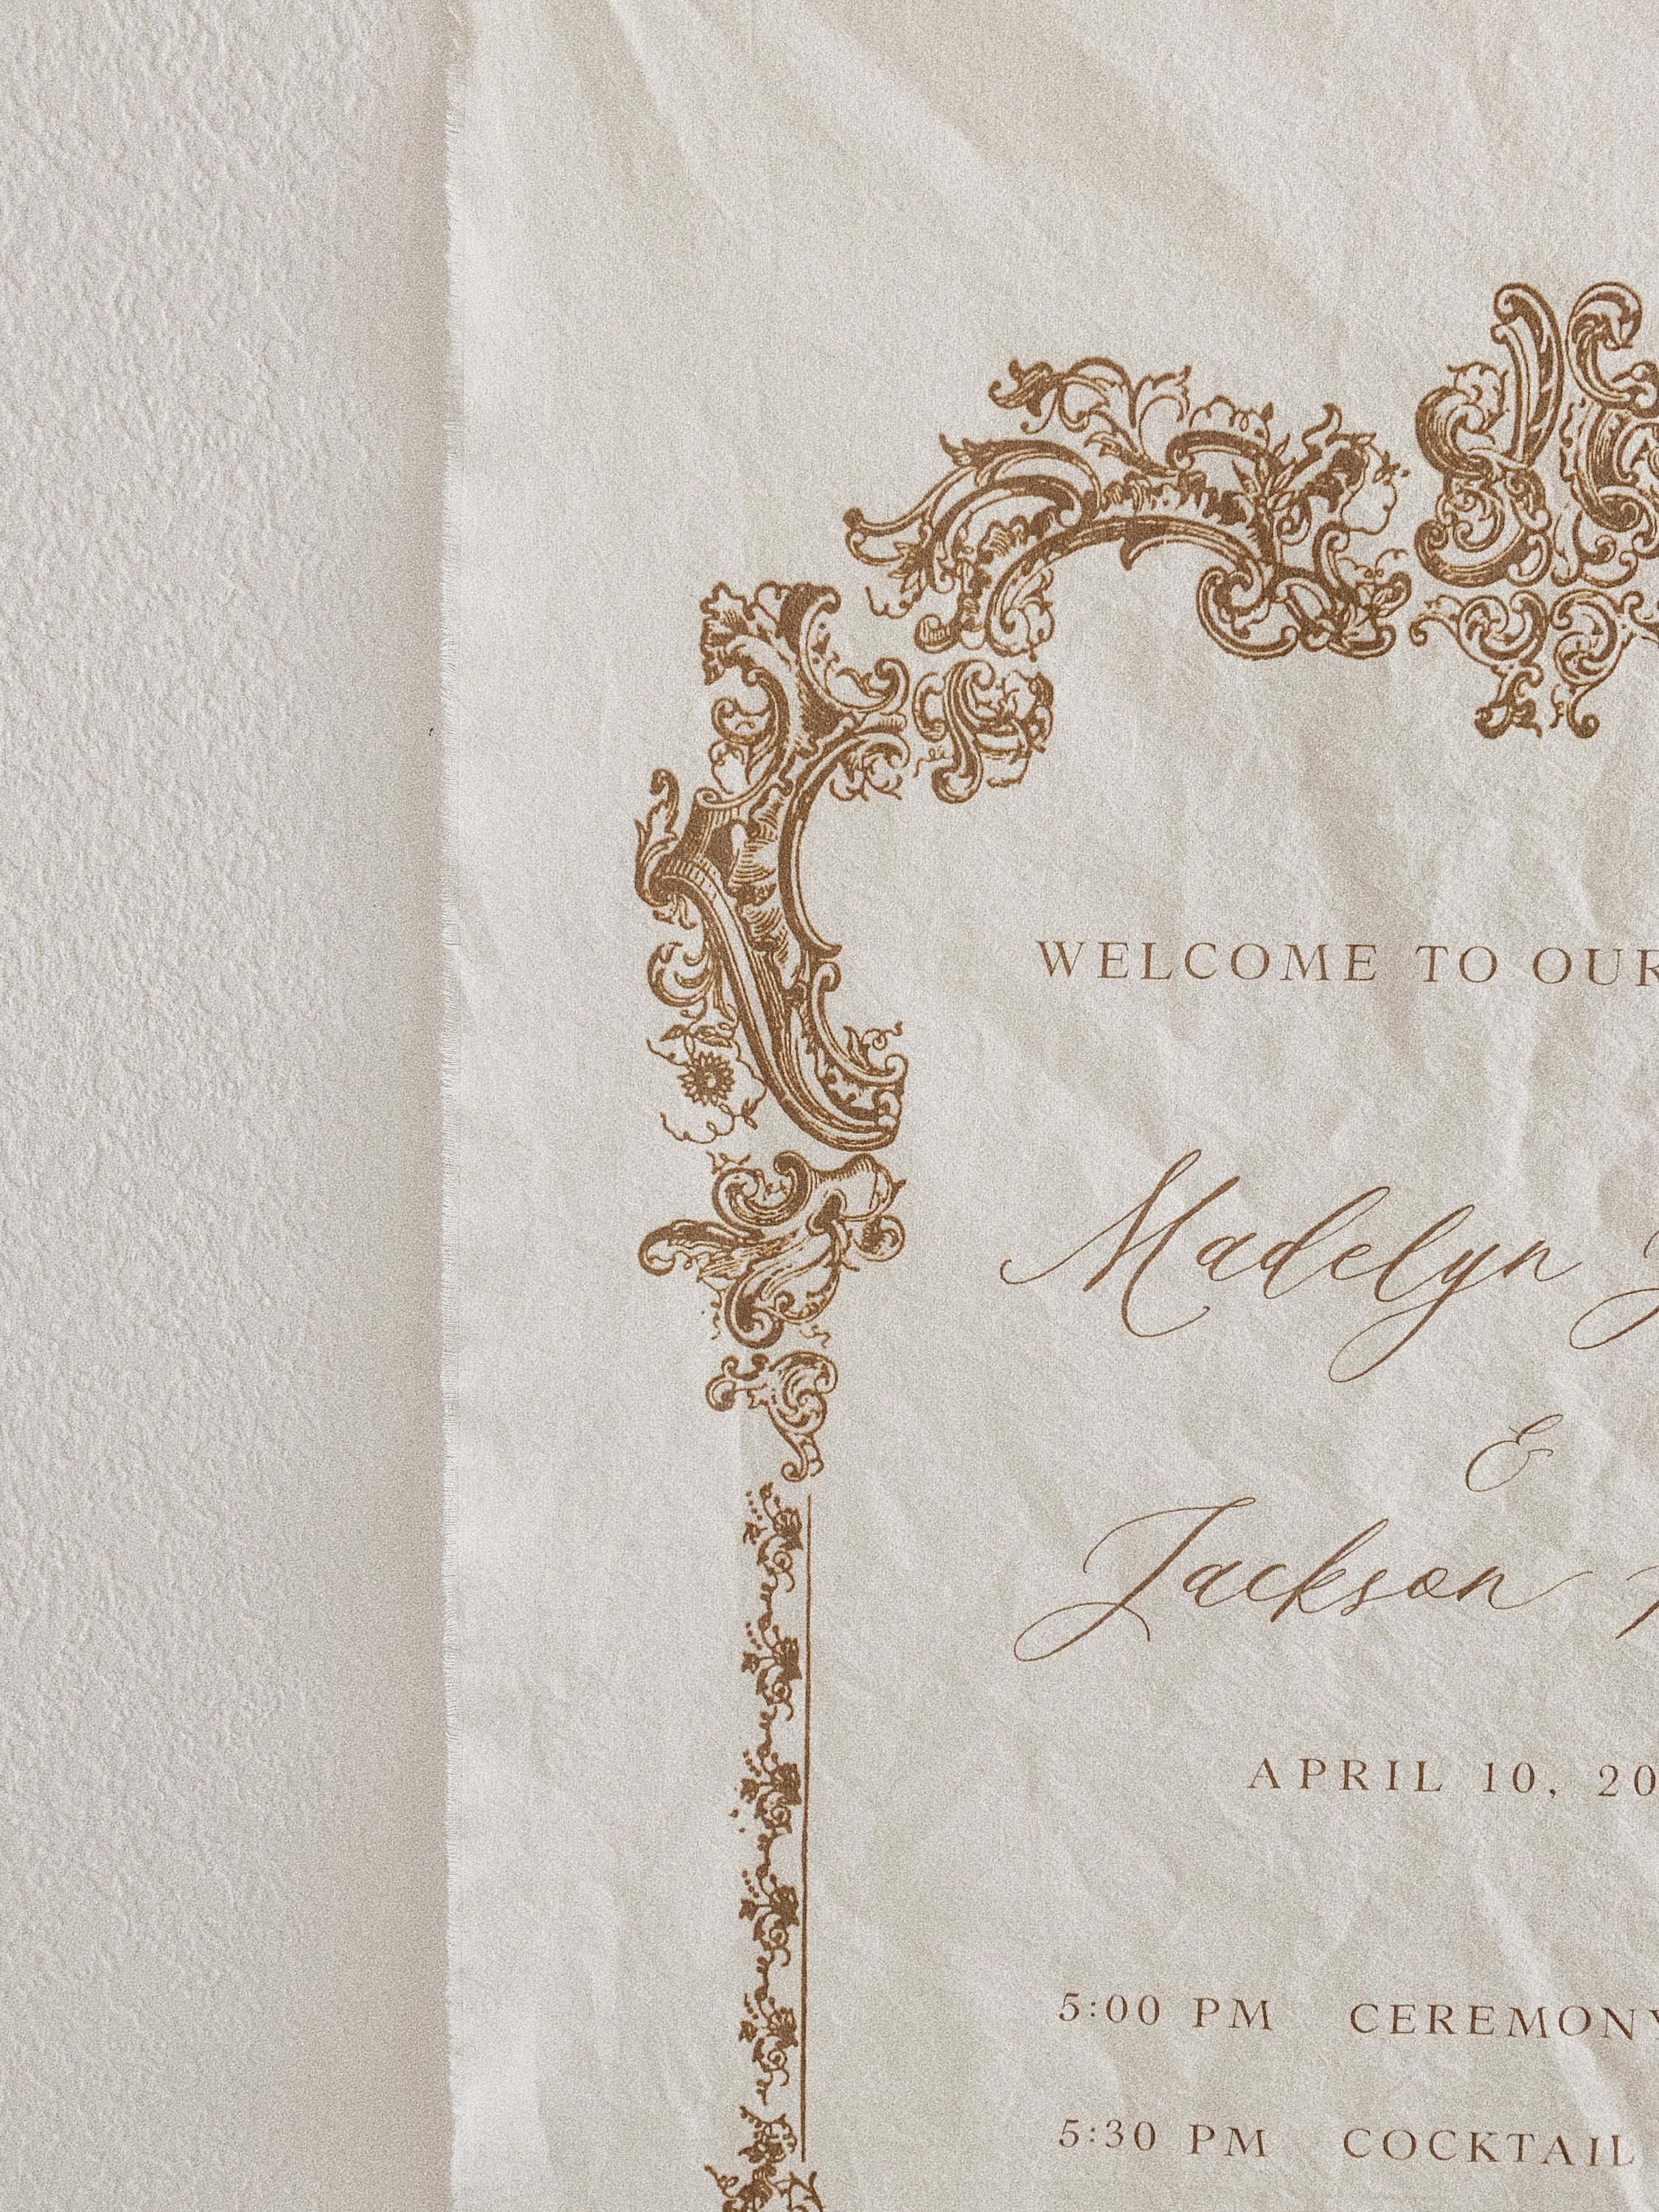 WELCOME TO OUR
Madelyn
&
Jackson
APRIL 10, 20
5:00 PM CEREMONY
5:30 PM COCKTAIL